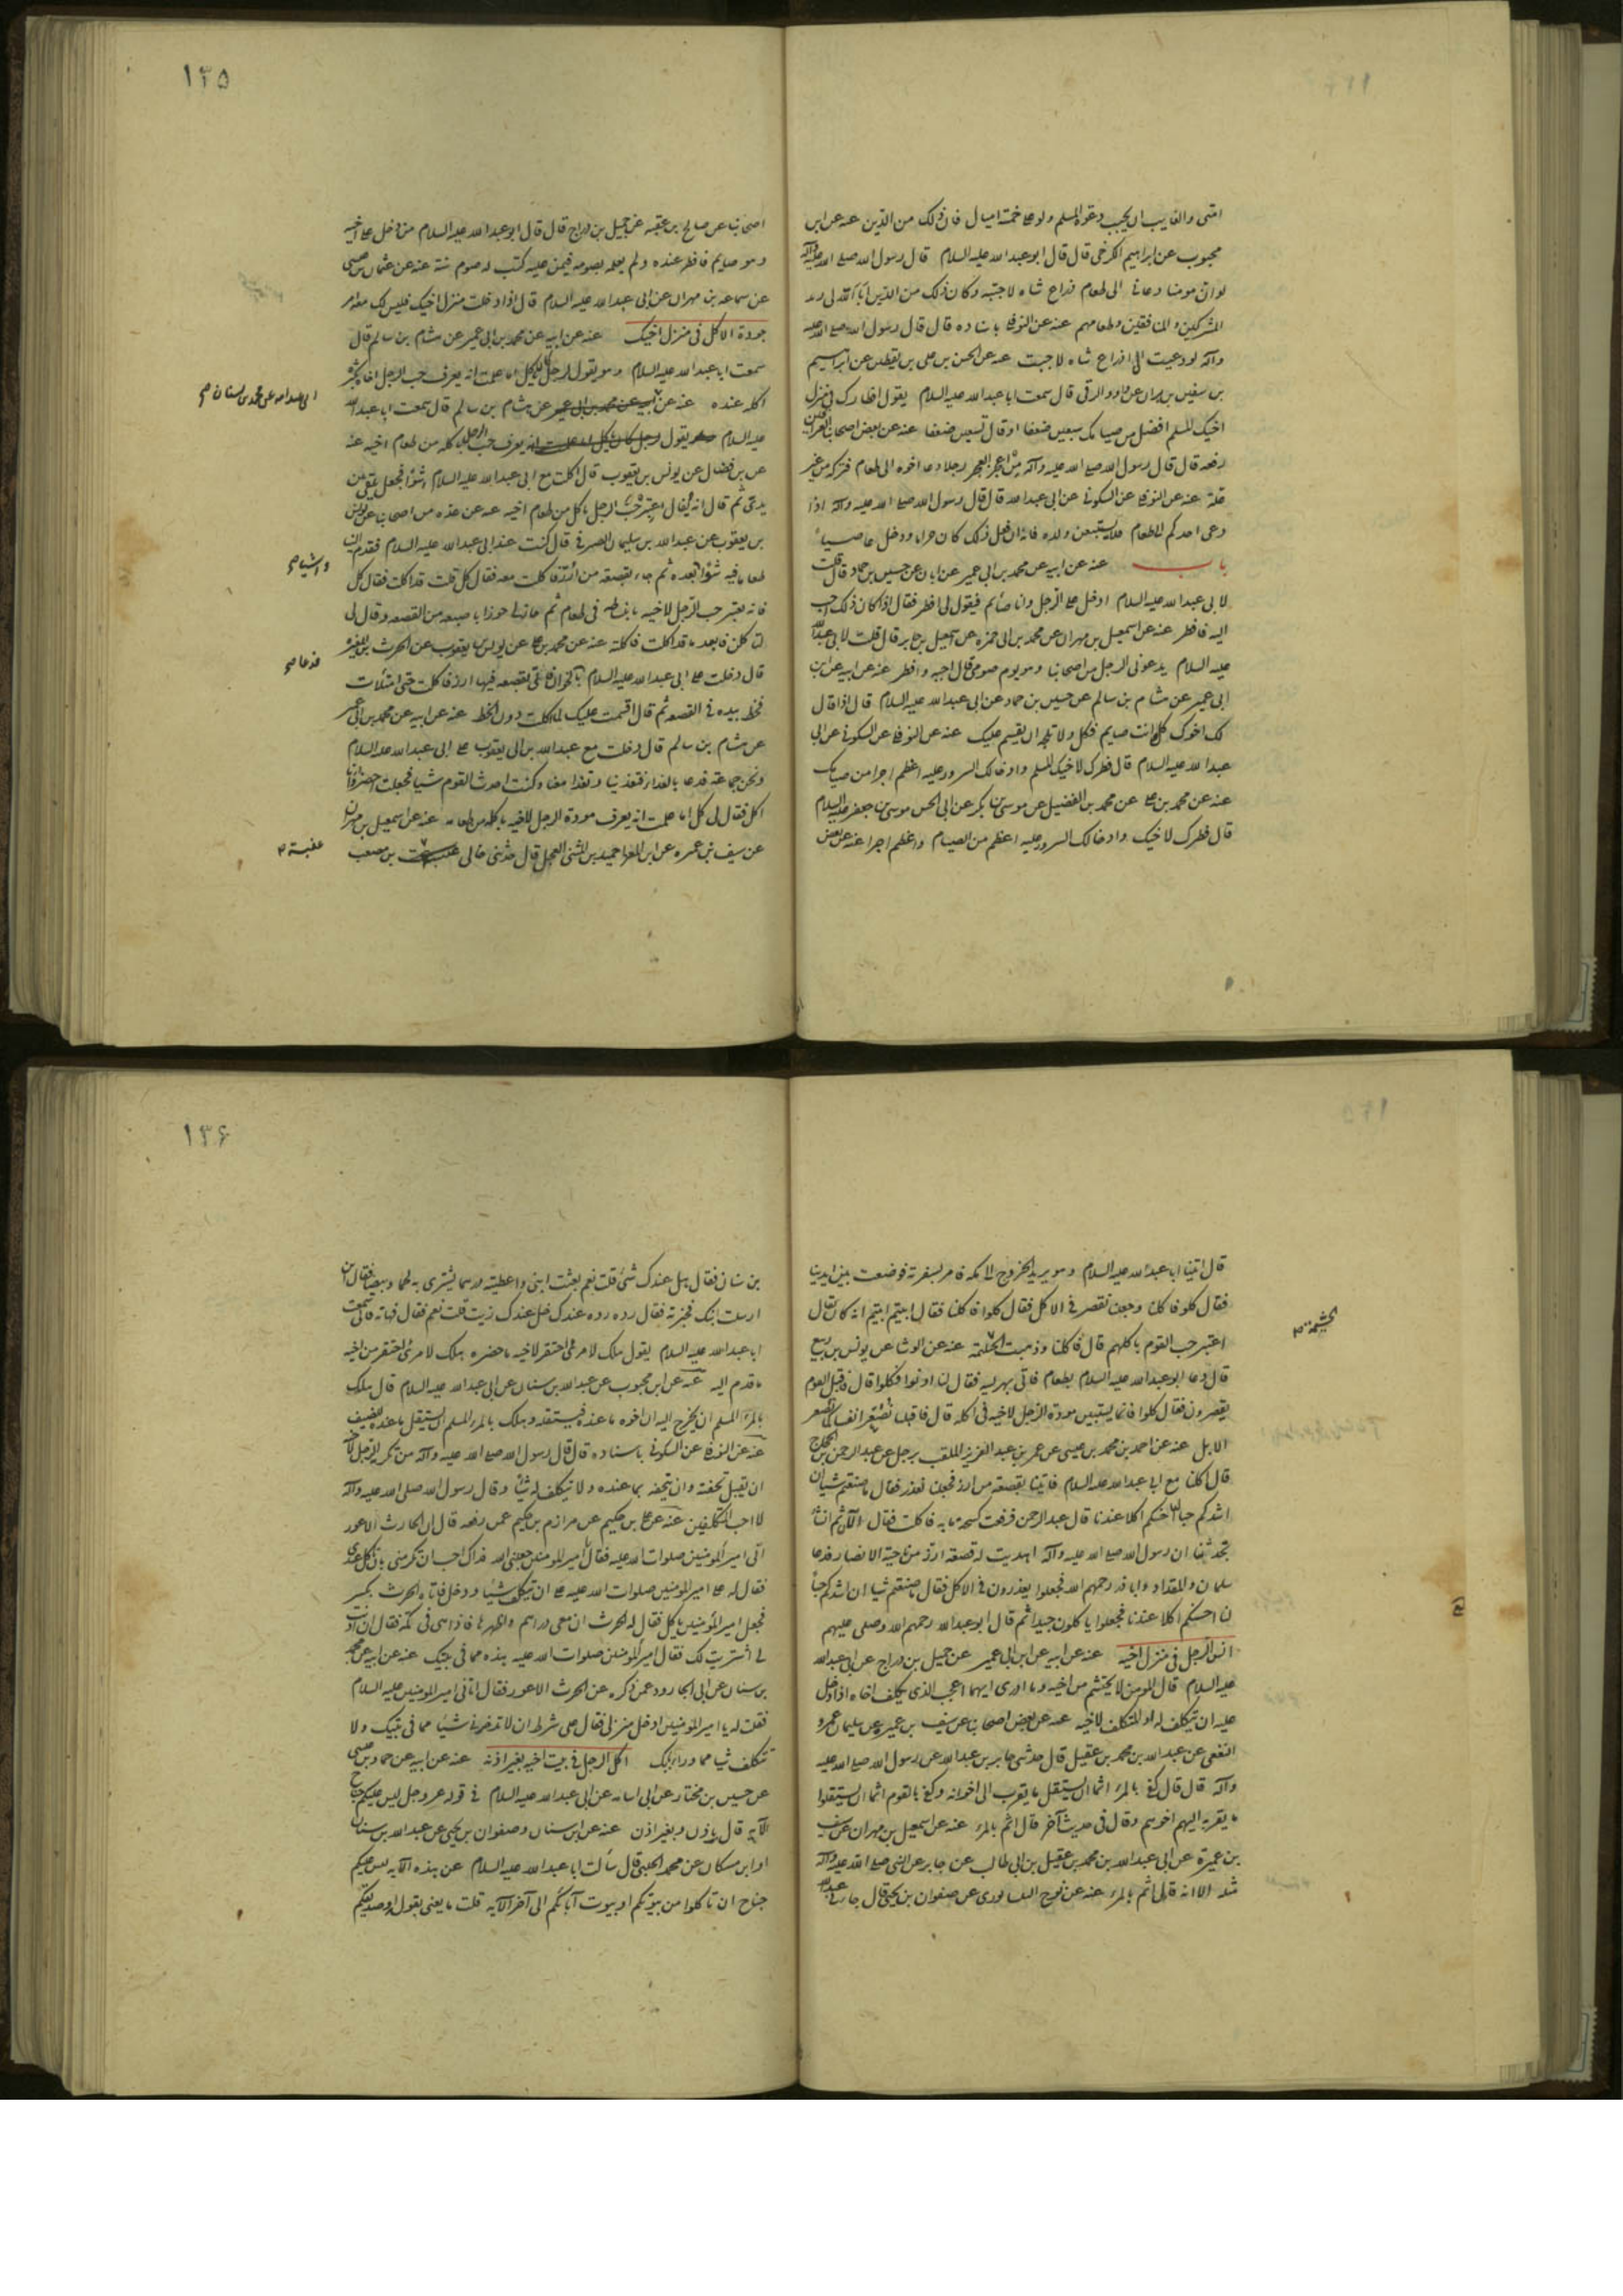 امتى والغايب ان يجيب دعوة المسلم ولو على خمسة اميال فان ذلك من الدين عنه عن ابن
محبوب عن ابراهيم الكرخى قال قال ابو عبد الله عليه السلام قال رسول الله صلى الله عليه وآله
لو ان مومنا دعانى الى طعام ذراع شاه لاجبته وكان ذلك من الدين ابى الله لى زبد
المشركين والمنافقين وطعامهم عنه عن النوفلى باسناده قال قال رسول الله صلى الله عليه
وآله لو دعيت الى ذراع شاه لاجبت عنه عن الحسن بن على بن يقطين عن ابراهيم
بن سفين بن براز عن داود الرقى قال سمعت ابا عبد الله عليه السلام يقول افطارك فى منزل
اخيك المسلم افضل من صيامك سبعين ضعفا او قال تسعين ضعفا عنه عن بعض اصحابنا العراقيين
رفعه قال قال رسول الله صلى الله عليه وآله من اعجز العجز رجلا دعاه اخوه الى طعام فتركه من غير
علة عنه عن النوفلى عن السكونى عن ابى عبد الله قال قال رسول الله صلى الله عليه وآله اذا
دعى احدكم الى طعام فلا يستتبعن ولده فانه ان فعل ذلك كان حراما ودخل عاصيا
باب عنه عن ابيه عن محمد بن ابى عمير عن ابان عن حسين بن حماد قال قلت
لابى عبد الله عليه السلام ادخل على الرجل وانا صائم فيقول لى افطر فقال اذا كان ذلك احب
اليه فافطر عنه عن اسمعيل بن مهران عن محمد بن ابى حمزه عن اسمعيل بن جابر قال قلت لابى عبد الله
عليه السلام يدعونى الرجل من اصحابنا وهو يوم صومى قال اجبه وافطر عنه عن ابيه عن ابن
ابى عمير عن هشام بن سالم عن حسين بن حماد عن ابى عبد الله عليه السلام قال اذا قال
لك اخوك كل وانت صايم فكل ولا تلجه ان يقسم عليك عنه عن النوفلى عن السكونى عن ابى
عبد الله عليه السلام قال فطرك لاخيك المسلم وادخالك السرور عليه اعظم اجرا من صيامك
عنه عن محمد بن على عن محمد بن الفضيل عن موسى بن بكر عن ابى الحسن موسى بن جعفر عليه السلام
قال فطرك لاخيك وادخالك السرور عليه اعظم من الصيام واعظم اجرا عنه عن بعض
١٣٥
اصحابنا عن صالح بن عقبه عن جميل بن دراج قال قال ابو عبد الله عليه السلام من دخل على اخيه
وهو صايم فافطر عنده ولم يعلمه بصومه فيمن عليه كتب له صوم سنة عنه عن عثمان بن عيسى
عن سماعه بن مهران عن ابى عبد الله عليه السلام قال اذا دخلت منزل اخيك فليس لك معه امر
جودة الاكل فى منزل اخيك عنه عن ابيه عن محمد بن ابى عمير عن هشام بن سالم قال
سمعت ابا عبد الله عليه السلام وهو يقول لرجل كان ياكل اما علمت انه يعرف حب الرجل اخاه بكثرة
اكله عنده عنه عن ابيه عن محمد بن ابى عمير عن هشام بن سالم قال سمعت ابا عبد الله
عليه السلام يقول يعرف حب الرجل باكله من طعام اخيه عنه
عن بن فضال عن يونس بن يعقوب قال اكلت مع ابى عبد الله عليه السلام شواء فجعل يلقى بين
يدى ثم قال انه يقال اعتبر حب الرجل باكله من طعام اخيه عنه عن عده من اصحابنا عن يونس
بن يعقوب عن عبد الله بن سليمان الصيرفى قال كنت عند ابى عبد الله عليه السلام فقدم الينا
طعاما فيه شواء بعده ثم جاء بقصعة من ارز فاكلت معه فقال كل قلت قد اكلت فقال كل
فانه يعتبر حب الرجل لاخيه بانبساطه فى طعام ثم حاز لى حوزا باصبعه من القصعه وقال لى
لتاكلن ذا بعد ما قد اكلت فاكلته عنه عن محمد بن على عن يونس بن يعقوب عن الحرث بن المغيره
قال دخلت على ابى عبد الله عليه السلام فاتى بقصعه فيها ارز فاكلت حتى امتلات
فخط بيده فى القصعه ثم قال اقسمت عليك لما اكلت دون الخط عنه عن ابيه عن محمد بن ابى عمير
عن هشام بن سالم قال دخلت مع عبد الله بن ابى يعقوب على ابى عبد الله عليه السلام
ونحن جماعة فدعا بالغداء فتغدينا وتغدا معنا وكنت احدث القوم سنا فجعلت احصر وانا
اكل فقال لى كل اما علمت انه يعرف مودة الرجل لاخيه باكله من طعامه عنه عن اسمعيل بن مهران
عن سيف بن عميره عن ابى المغرا حميد بن المثنى العجلى قال حدثنى خالى بن مصعب
واشياء
فدعا
عنبسة
قال اتينا ابا عبد الله عليه السلام وهو يريد الخروج الى مكه فامر بسفرته فوضعت بين ايدينا
فقال كلوا فاكلنا وجعلنا نقصر فى الاكل فقال كلوا فاكلنا فقال ابيتم ابيتم انه كان يقال
اعتبر حب القوم باكلهم قال فاكلنا وذهبت الحشمة عنه عن الوشا عن يونس بن ربيع
قال دعا ابو عبد الله عليه السلام بطعام فاتى بهريسه فقال لنا ادنوا فكلوا قال فاقبل القوم
يقصرون فقال كلوا فانما يستبين مودة الرجل لاخيه فى اكله قال فاقبلنا
الابل عنه عن احمد بن محمد بن عيسى عن عمر بن عبد العزيز الملقب بزحل عن عبد الرحمن بن الحجاج
قال اكلنا مع ابى عبد الله عليه السلام فاتينا بقصعة من ارز فجعلنا نعذر فقال ما صنعتم شيئا ان
اشدكم حبا لنا احسنكم اكلا عندنا قال عبد الرحمن فرفعت كشحة مابه فاكلت فقال الآن ثم انشأ
يحدثنا ان رسول الله صلى الله عليه وآله اهديت له قصعة ارز من ناحية الانصار فدعا
سلمان والمقداد وابا ذر رحمهم الله فجعلوا يعذرون فى الاكل فقال ما صنعتم شيئا ان اشدكم حبا
لنا احسنكم اكلا عندنا فجعلوا ياكلون جيدا ثم قال ابو عبد الله رحمهم الله وصلى عليهم
انس الرجل فى منزل اخيه عنه عن ابيه عن ابن ابى عمير عن جميل بن دراج عن ابى عبد الله
عليه السلام قال المومن لا يحتشم من اخيه وما ادرى ايهما اعجب الذى يكلف اخاه اذا دخل
عليه ان يتكلف له او المتكلف لاخيه عنه عن بعض اصحابنا عن سيف بن عميره عن سليمان بن عمرو
النخعى عن عبد الله بن محمد بن عقيل قال حدثنى جابر بن عبد الله عن رسول الله صلى الله عليه
وآله قال قال كفى بالمرء اثما ان يستقل ما يقرب الى اخوانه وكفى بالقوم اثما ان يستقلوا
ما يقربه اليهم اخوهم وقال فى حديث آخر قال اثم بالمرء عنه عن اسمعيل بن مهران عن سيف
بن عميرة عن ابى عبد الله بن محمد بن عقيل بن ابى طالب عن جابر عن النبى صلى الله عليه وآله
مثله الا انه قال اثم بالمرء عنه عن نوح النيسابورى عن صفوان بن يحيى قال جاءنى عبد الله
الحشمة
١٣۶
بن سنان فقال هل عندك شىء قلت نعم بعثت ابنى واعطيته درهما يشترى به لحما وبيضا فقال اين
ارسلت ابنك فخبرته فقال رده رده عندك خل عندك زيت قلت نعم فقال فهاته فانى سمعت
ابا عبد الله عليه السلام يقول هلك لامرئ احتقر لاخيه ما حضره هلك لامرئ احتقر من اخيه
ما قدم اليه عنه عن ابن محبوب عن عبد الله بن سنان عن ابى عبد الله عليه السلام قال هلك
بالمرء المسلم ان يخرج اليه ان اخوه ما عنده فيستقله وهلك بالمرء المسلم ان يستقل ما عنده للضيف
عنه عن النوفلى عن السكونى باسناده قال قال رسول الله صلى الله عليه وآله من تكرمة الرجل لاخيه
ان يقبل تحفته وان يتحفه بما عنده ولا يتكلف له شيئا وقال رسول الله صلى الله عليه وآله
لا احب المتكلفين عنه عن على بن حكيم عن مرازم بن حكيم عمن رفعه قال ان الحارث الاعور
اتى امير المؤمنين صلوات الله عليه فقال يا امير المومنين جعلنى الله فداك احب ان تكرمنى بان تاكل عندى
فقال له على امير المومنين صلوات الله عليه على ان لا تتكلف شيئا ودخل فاتاه الحرث بكسر
فجعل امير المؤمنين ياكل فقال له الحرث ان معى دراهم واظهرها فاذا هى فى كمه فقال ان اذنت
لى اشتريت لك فقال امير المؤمنين صلوات الله عليه هذه مما فى بيتك عنه عن ابيه عن محمد
بن سنان عن ابى الجارود عمن ذكره عن الحرث الاعور فقال اتانى امير المومنين عليه السلام
فقلت له يا امير المومنين ادخل منزلى فقال على شرط ان لا تدخرنى شيئا مما فى بيتك ولا
تتكلف شيئا مما وراء بابك اكل الرجل فى بيت اخيه بغير اذنه عنه عن ابيه عن حماد بن عيسى
عن حسين بن مختار عن ابى اسامه عن ابى عبد الله عليه السلام فى قوله عز وجل ليس عليكم جناح
الآيه قال باذن وبغير اذن عنه عن ابن سنان وصفوان بن يحيى عن عبد الله بن سنان
او ابن مسكان عن محمد الحلبى قال سألت ابا عبد الله عليه السلام عن هذه الآيه ليس عليكم
جناح ان تاكلوا من بيوتكم او بيوت آبائكم الى آخر الآيه قلت ما يعنى بقوله او صديقكم